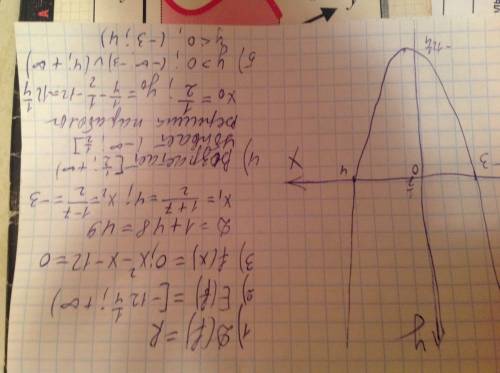 1) D(f) = R
2) E(f) = [-12 1/4; +∞)
3) f(x) = 0; x² - x - 12 = 0
D = 1 + 48 = 49
x₁ = (1+7)/2 = 4; x₂ = (1-7)/2 = -3
4) возрастает - [1/2; +∞)
убывает (-∞; 1/2]
вершина параболы
x₀ = 1/2; y₀ = 1/4 - 1/2 - 12 = -12 1/4
5) y > 0; (-∞; -3) ∪ (4; +∞)
y < 0; (-3; 4)
y
3
0
1/2
4
X
-12 1/4